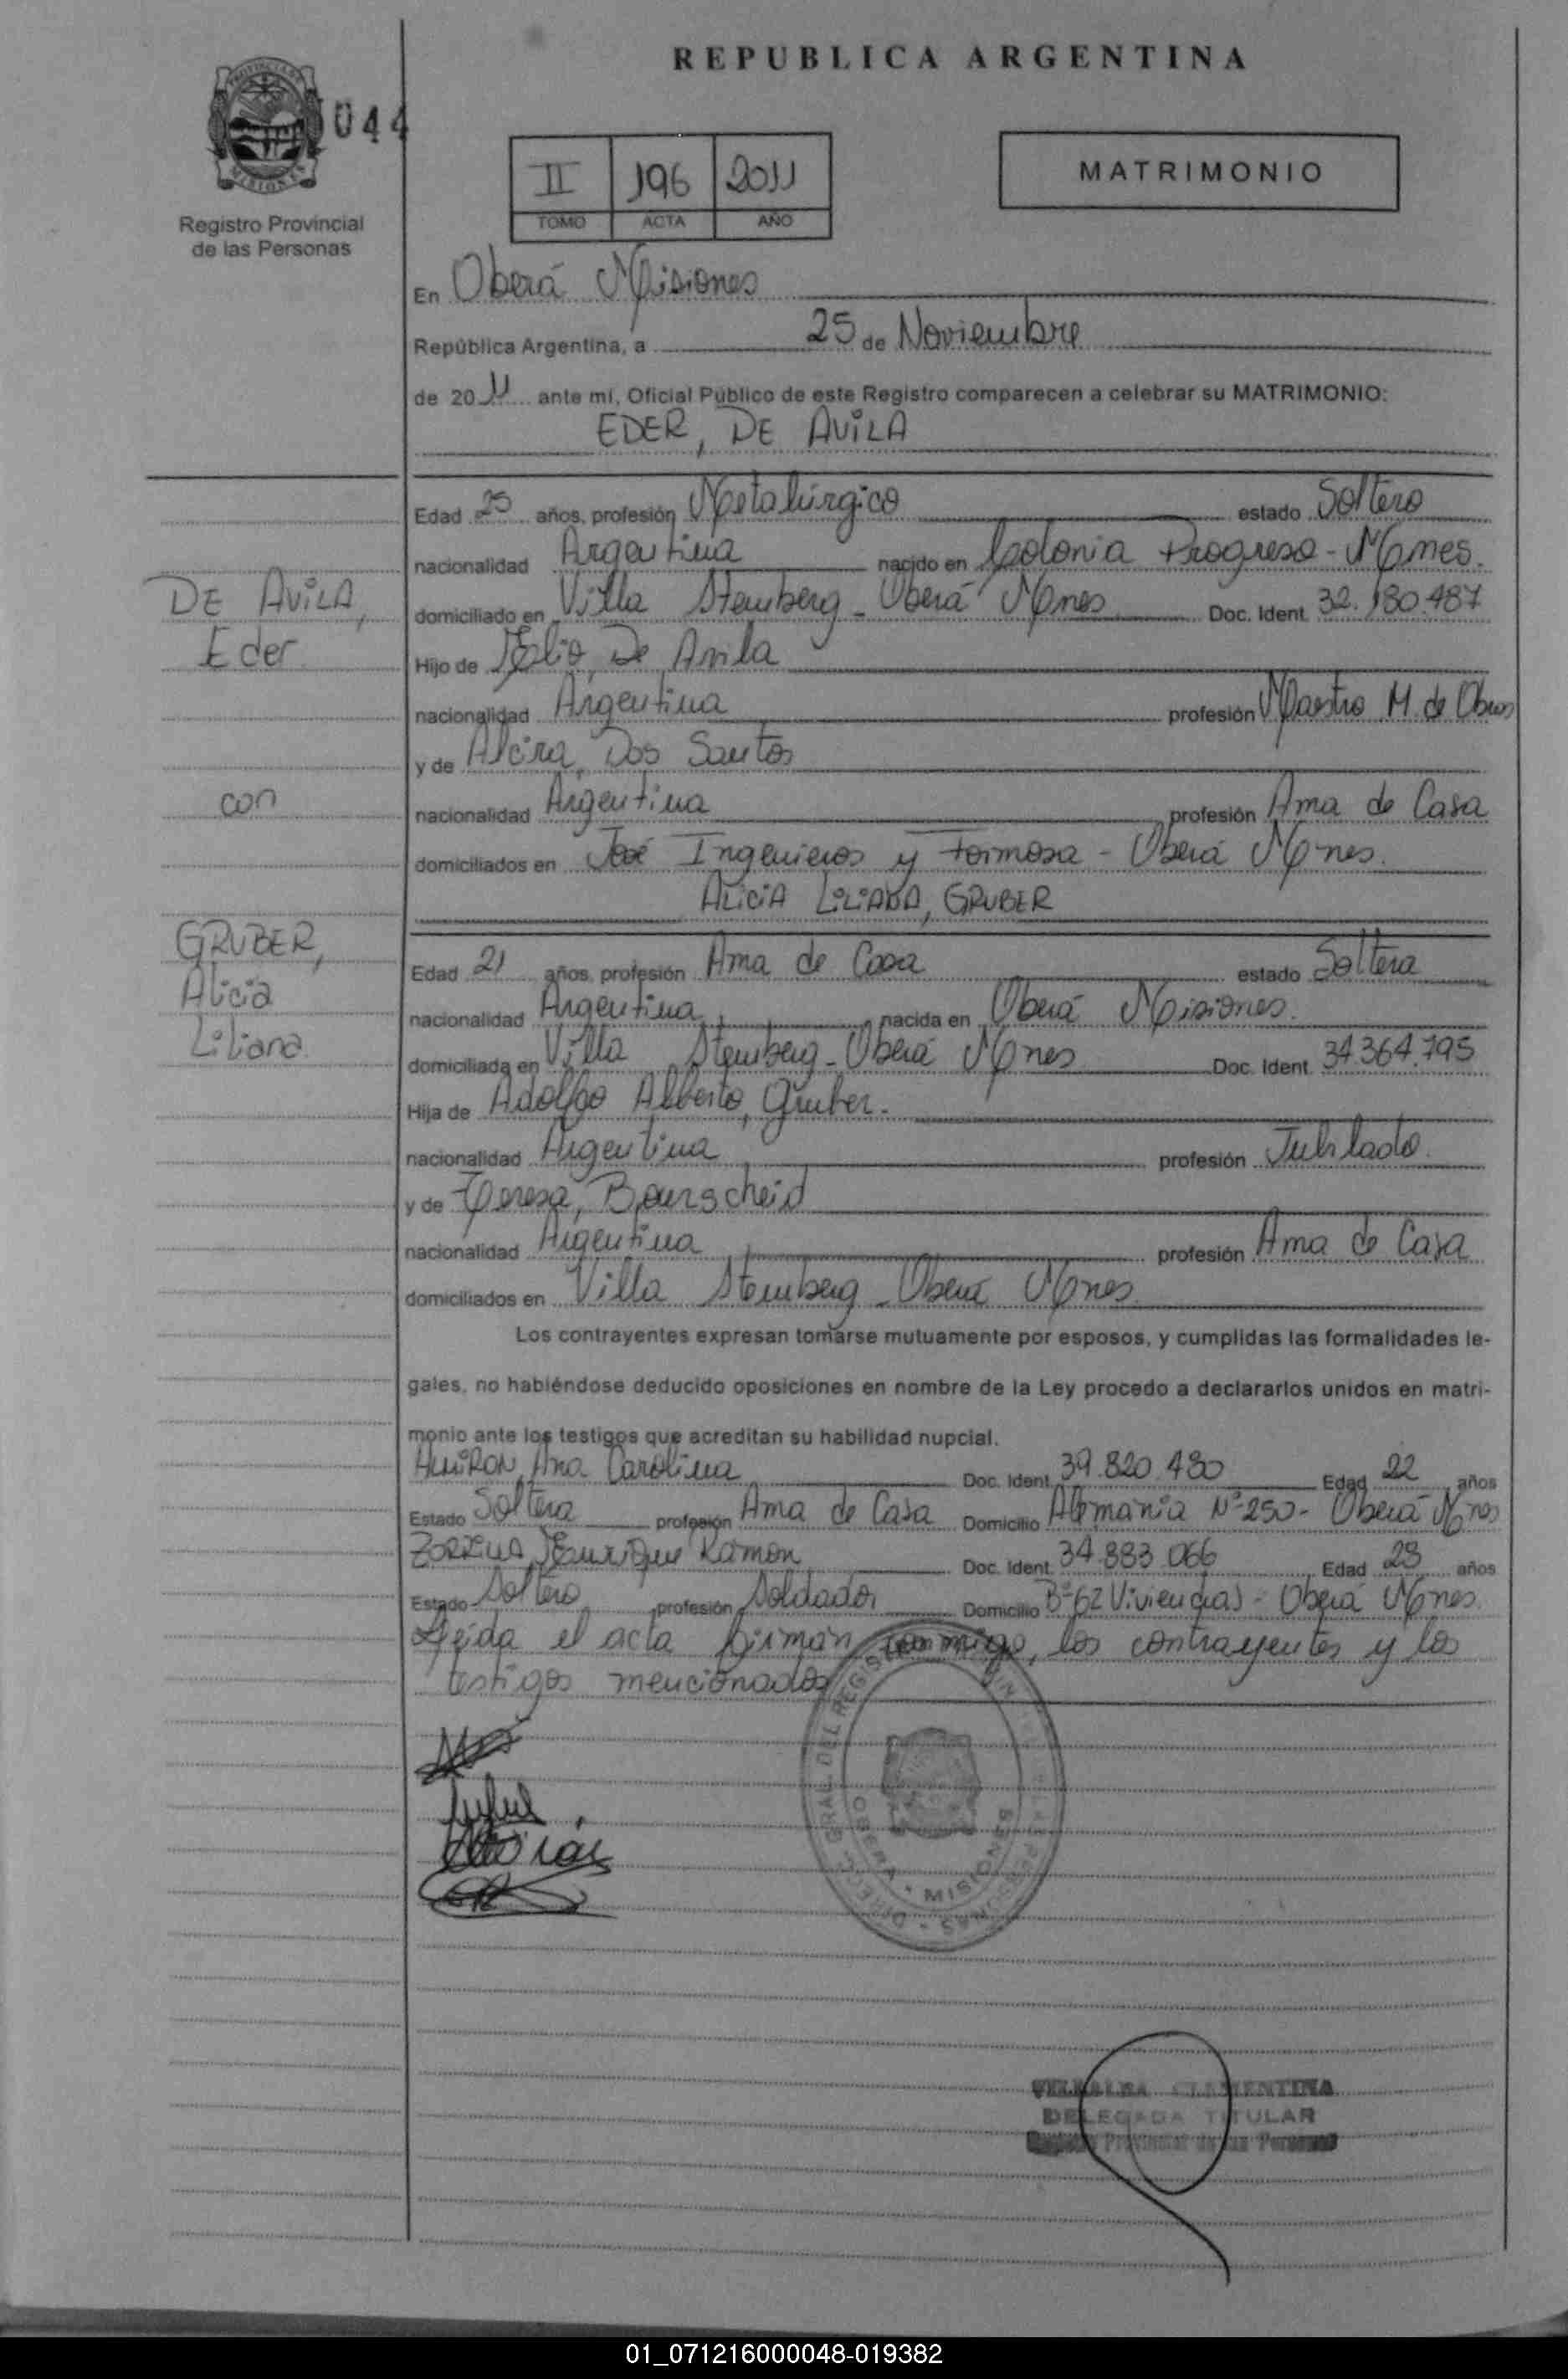 REPUBLICA ARGENTINA
044
II 196 2011
TOMO ACTA AÑO
MATRIMONIO
Registro Provincial
de las Personas
En Oberá Misiones
República Argentina, a 25 de Noviembre
de 2011 ante mí, Oficial Público de este Registro comparecen a celebrar su MATRIMONIO:
EDER, DE AVILA
Edad 25 años, profesión Metalúrgico estado Soltero
nacionalidad Argentina nacido en Colonia Progreso - Mnes.
DE AVILA,
Eder
domiciliado en Villa Stemberg - Oberá Mnes Doc. Ident. 32.180.487
Hijo de Helio, De Avila
nacionalidad Argentina profesión Maestro M. de Obras
y de Alcira, Dos Santos
con
nacionalidad Argentina profesión Ama de Casa
domiciliados en José Ingenieros y Formosa - Oberá Mnes.
ALICIA LILIANA, GRUBER
GRUBER,
Alicia
Liliana.
Edad 21 años, profesión Ama de Casa estado Soltera
nacionalidad Argentina nacida en Oberá Misiones.
domiciliada en Villa Stemberg - Oberá Mnes Doc. Ident. 34.364.795
Hija de Adolfo Alberto, Gruber.
nacionalidad Argentina profesión Jubilado.
y de Teresa, Bourscheid
nacionalidad Argentina profesión Ama de Casa
domiciliados en Villa Stemberg - Oberá Mnes.
Los contrayentes expresan tomarse mutuamente por esposos, y cumplidas las formalidades le-
gales, no habiéndose deducido oposiciones en nombre de la Ley procedo a declararlos unidos en matri-
monio ante los testigos que acreditan su habilidad nupcial.
Ana Carolina Doc. Ident. 39.820.480 Edad 22 años
Estado Soltera profesión Ama de Casa Domicilio Alemania Nº 250 - Oberá Mnes
Enrique Ramon Doc. Ident. 34.883.066 Edad 23 años
Estado Soltero profesión Soldador Domicilio Bº 62 Viviendas - Oberá Mnes.
Leida el acta firman conmigo, los contrayentes y los
testigos mencionados
OBERA • MISIONES
VILLALBA CLEMENTINA
DELEGADA TITULAR
Registro Provincial de las Personas
01_071216000048-019382